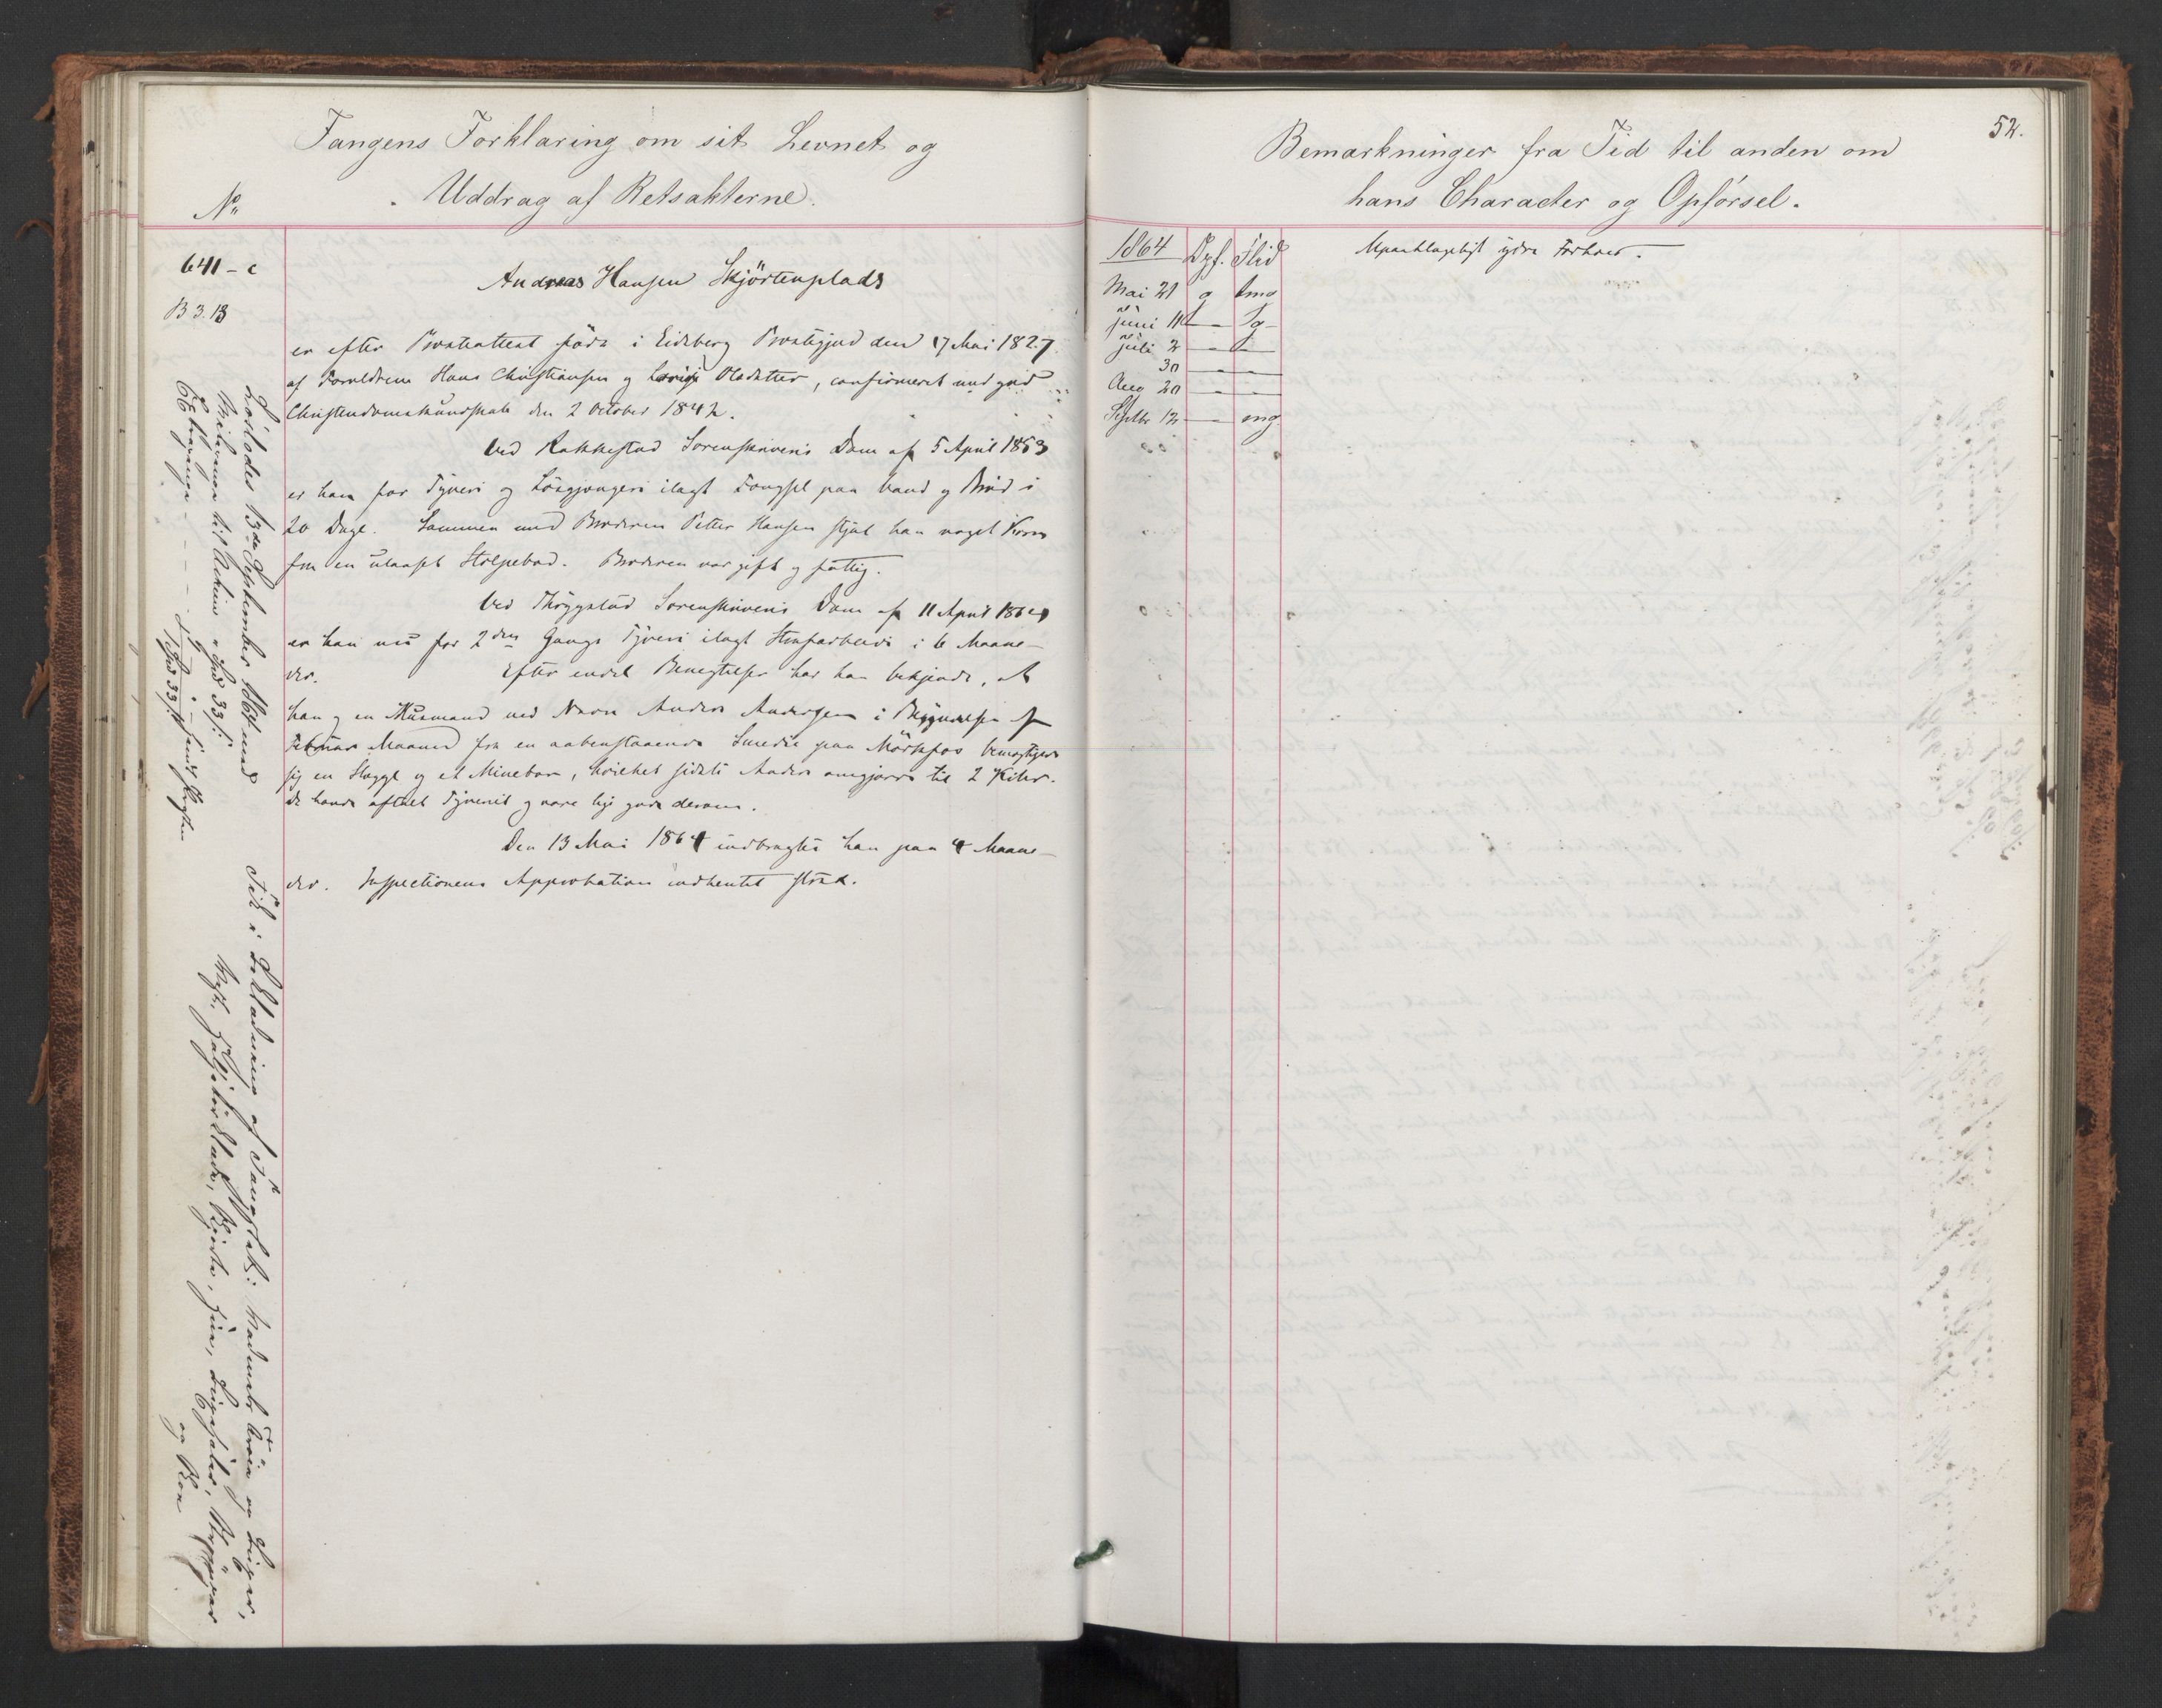 Fangens Forklaring om sit Levnet og
Uddrag af Retsakterne.
No
641 - c
B 3. 13
Andreas Hansen Skjörtenplads
er efter Præsteattest född i Eidsberg Præstegjed den 17 Mai 1827
af Forældrene Hans Christiansen og Olsdatter, confirmeret med god
Christendomskundskab den 2 October 1842.
Ved Rakkestad Sorenskriveris Dom af 5 April 1853
er han for Tyveri og Lösgjængeri ilagt Fængsel paa Vand og Bröd i
20 Dage. Sammen med Broderen Petter Hansen stjal han noget Korn
fra en ulaaset Stolpebod. Broderen var gift og fattig.
Ved Thrygstad Sorenskriveris Dom af 11 April 1864
er han nu for 2den Gangs Tyveri ilagt Strafarbeide i 6 Maane-
der. Efter endel Benegtelser har han bekjendt, at
han og en Huusmand ved Navn Anders Andersen i Begyndelsen af
Februar Maaned fra en aabenstaaende Smedie paa bemægtigede
sig en Slægge og et Minebor, hvilket sidste Anders omgjorde til 2 Kiler.
De havde aftalt Tyveriet og vare lige gode derom.
Den 13 Mai 1864 indbragtes han paa 4 Maane-
der. Inspectionens Approbation indhentet strax.
Löslades 13de September 1864 med
til Reisen - Spd 33 s
Spd 33 s
Fik i af Fangetøi: Vadmels Tröie og Buxer,
Skjorte, Huue,
og Skoe
52.
Bemærkninger fra Tid til anden om
hans Character og Opförsel.
1864 Opf. Flid
Upaaklageligt ydre Forhold.
Mai 21 g tmg
Juni 11 — Tg
Juli 2 — —
30 — —
Aug 20 — —
Septbr 12 — mg